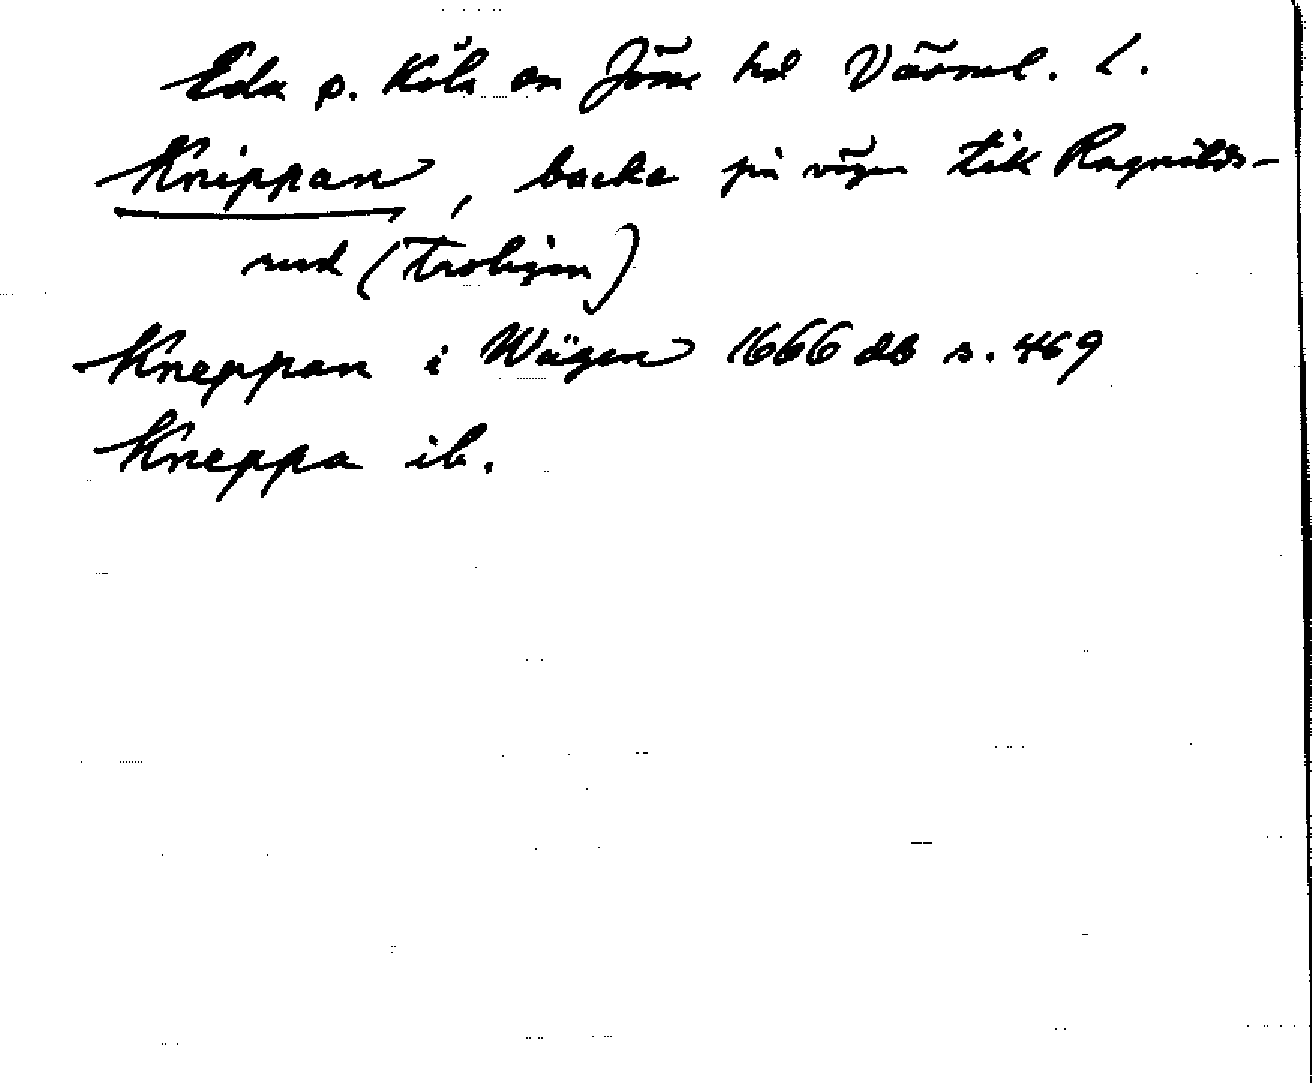 Eda s. Köla sn Jösse hd Värml. l.
Knippan, backe på vägen till Ragnilds-
rud (Trolision)
Kneppan i Wägen 1666 db s. 469
Kneppa ib.